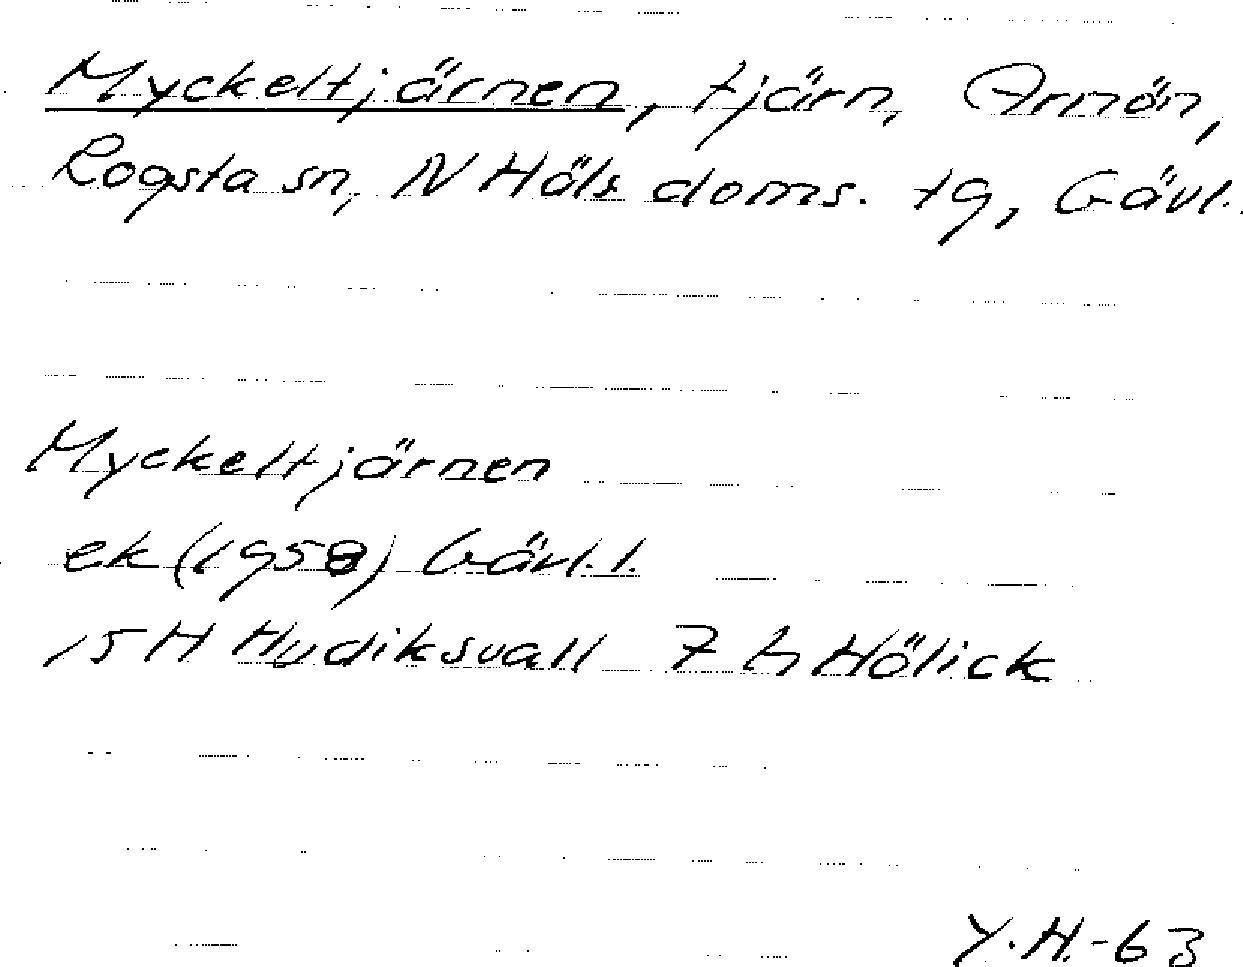 Myckeltjärnen, tjärn, Arnön,
Rogsta sn, N Häls. doms. tg, Gävl.
Myckeltjärnen
ek (1958) Gävl. l.
15H Hudiksvall 7 h Hölick
Y.H.-63